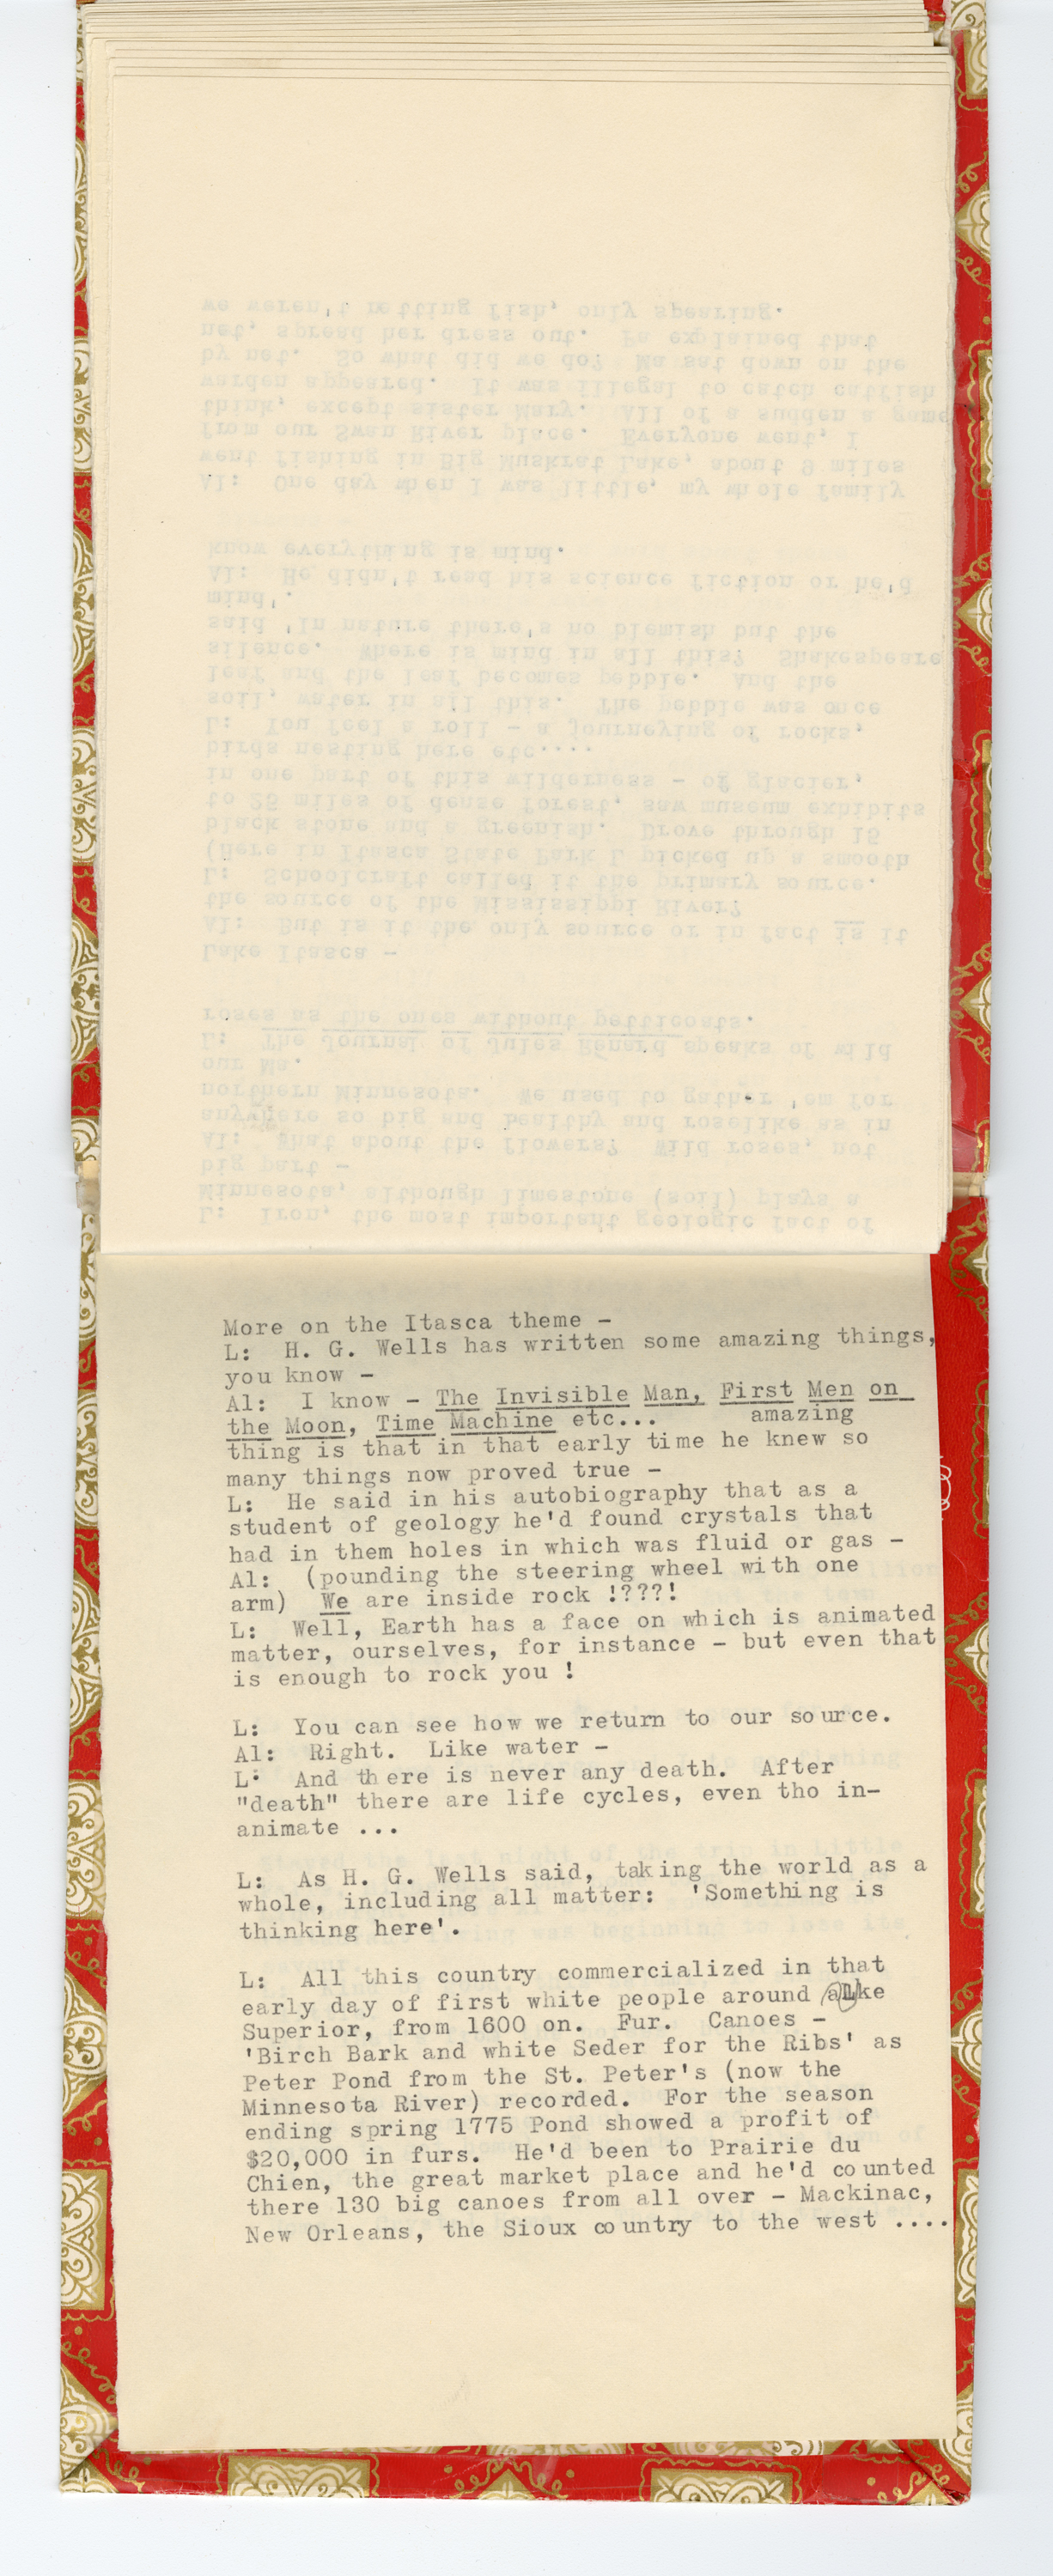 More on the Itasca theme -
L:  H. G. Wells has written some amazing things,
you know -
Al:  I know - The Invisible Man, First Men on
the Moon, Time Machine etc...      amazing
thing is that in that early time he knew so
many things now proved true -
L:  He said in his autobiography that as a
student of geology he'd found crystals that
had in them holes in which was fluid or gas -
Al:  (pounding the steering wheel with one
arm)  We are inside rock !???!
L:  Well, Earth has a face on which is animated
matter, ourselves, for instance - but even that
is enough to rock you !
L:  You can see how we return to our source.
Al:  Right.  Like water -
L:  And there is never any death.  After
"death" there are life cycles, even tho in-
animate ...
L:  As H. G. Wells said, taking the world as a
whole, including all matter:  'Something is
thinking here'.
L:  All this country commercialized in that
early day of first white people around aLke
Superior, from 1600 on.  Fur.  Canoes -
'Birch Bark and white Seder for the Ribs' as
Peter Pond from the St. Peter's (now the
Minnesota River) recorded.  For the season
ending spring 1775 Pond showed a profit of
$20,000 in furs.  He'd been to Prairie du
Chien, the great market place and he'd counted
there 130 big canoes from all over - Mackinac,
New Orleans, the Sioux country to the west ....